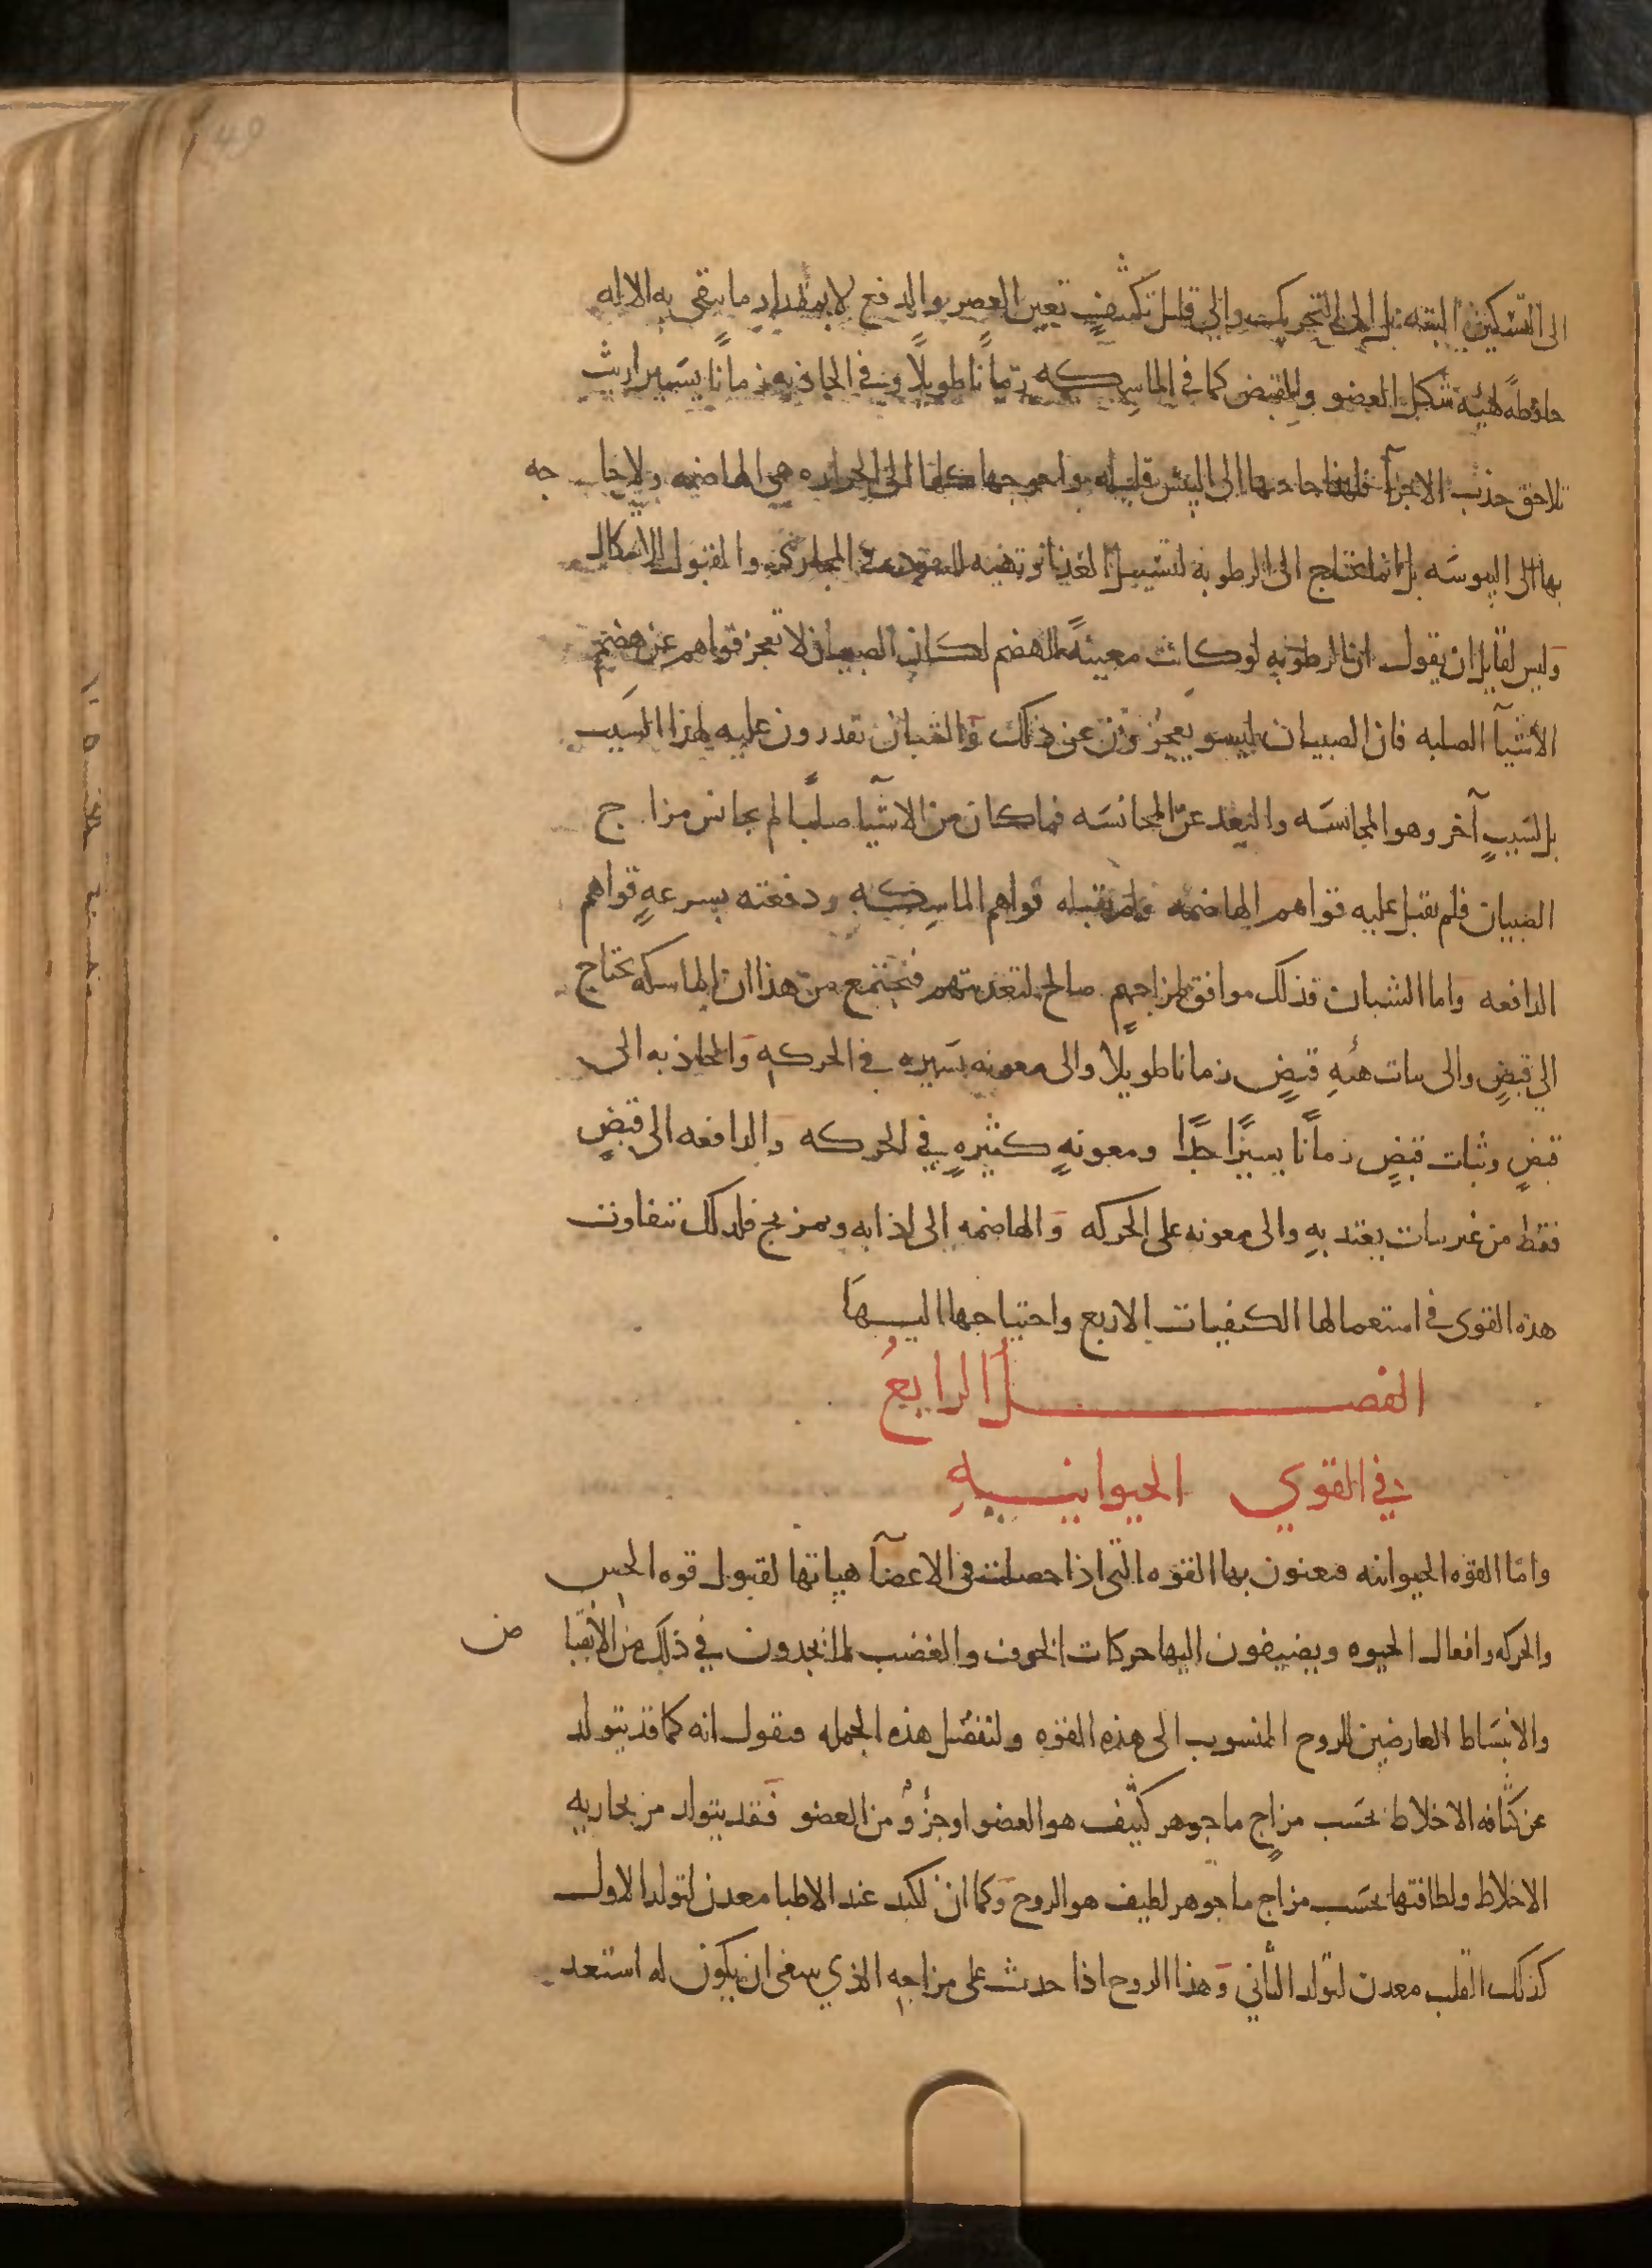 الى التسكين البته بل الى التحريك والى قليل تكثيف تعين العصر والدفع لا بمقدار ما يبقى به الاله
حافظة لهيئة شكل العضو والقبض كما فى الماسكه زمانا طويلا وفي الجاذبه زمانا يسيرا ريث
تلاحق جذب الاجزآ فلهذا حاجتها الى اليبس قليله واحوجها كلها الى الحراره هى الهاضمه ولا حاجه
بها الى اليبوسه بل انما تحتاج الى الرطوبه لتسييل الغذا وتهيئه للنفود فى المجارى والقبول للاشكال
وليس لقايل ان يقول ان الرطوبه لو كانت معينة للهضم لكان الصبيان لا تعجز قواهم عن هضم
الأشيآ الصلبه فان الصبيان ليسو يعجزون عن ذلك والشبان تقدرون عليه لهذا السبب
بل لسبب آخر وهو المجانسه والبعد عن المجانسه فما كان من الاشيآ صلبا لم يجانس مزاج
الصبيان فلم تقبل عليه قواهم الهاضمه ولم تقبله قواهم الماسكه ودفعته بسرعه قواهم
الدافعه واما الشبان فذلك موافق لمزاجهم صالح لتغذيتهم فيجتمع من هذا ان الماسكه تحتاج
الى قبض والى ىبات هيئه قبض زمانا طويلا والى معونه يسيره في الحركه والجاذبه الى
قبض وثبات قبض زمانا يسيرا جدا ومعونه كثيره في الحركه والدافعه الى قبض
فقط من غير ىبات يعتد به والى معونه على الحركه والهاضمه الى اذابه وتمزيج فلذلك تتفاوت
هذه القوى فى استعمالها الكيفيات الاربع واحتياجها اليها
الفصل الرابع
في القوي الحيوانيه
واما القوه الحيوانيه فيعنون بها القوه التى اذا حصلت فى الاعضآ هياتها لقبول قوه الحس
والحركه وافعال الحيوه ويضيفون اليها حركات الخوف والغضب لما يجدون في ذلك من الأنقباض
والانبساط العارضين للروح المنسوب الى هذه القوه ولنفصل هذه الجمله فىقول انه كما قد يتولد
عن كثافه الاخلاط بحسب مزاج ما جوهر كثيف هو العضو او جزؤ من العضو فقد يتولد من بخاريه
الاخلاط ولطافتها بحسب مزاج ما جوهر لطيف هو الروح وكما ان الكبد عند الاطبا معدن لتولد الاول
كذلك القلب معدن لتولد الثاني وهذا الروح اذا حدث على مزاجه الذي ىىبغى ان يكون له استعد